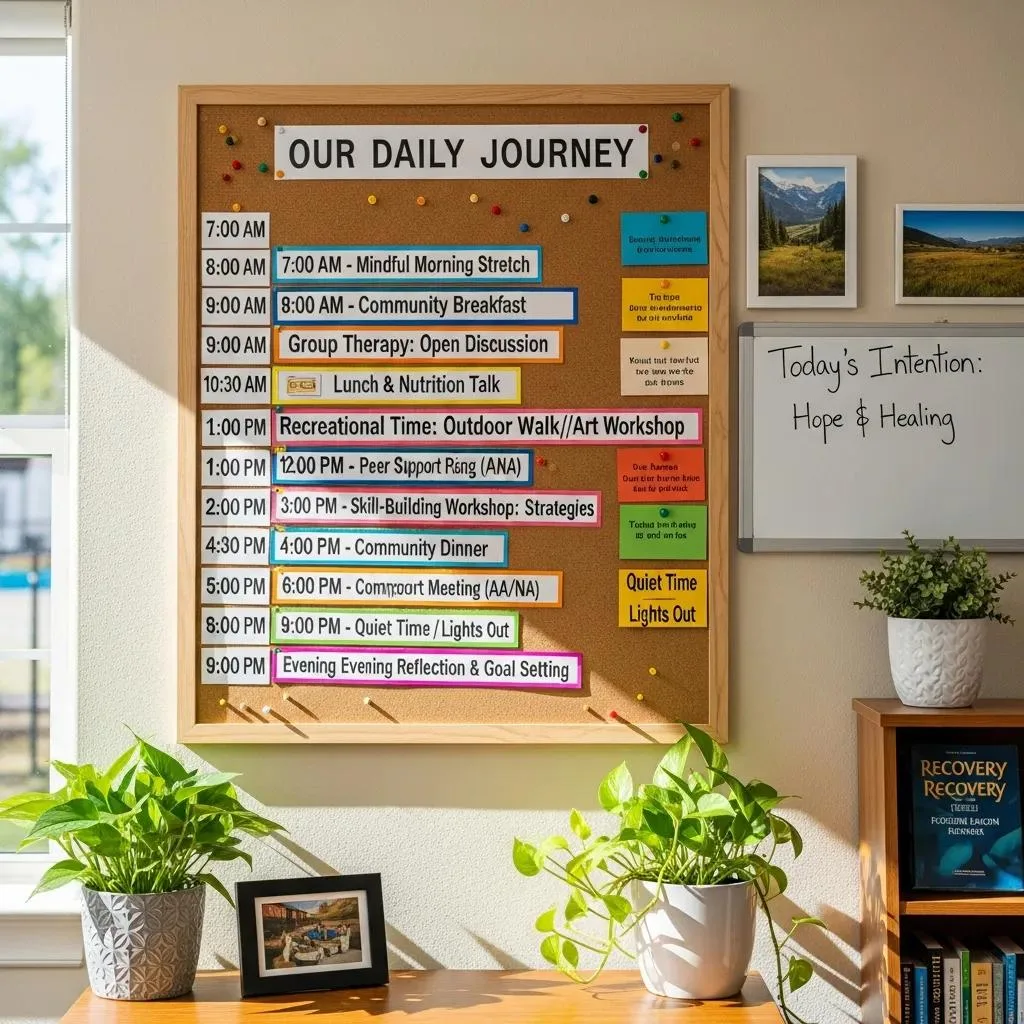 OUR DAILY JOURNEY
7:00 AM
8:00 AM 7:00 AM - Mindful Morning Stretch
9:00 AM 8:00 AM - Community Breakfast
9:00 AM Group Therapy: Open Discussion
10:30 AM Lunch & Nutrition Talk
1:00 PM Recreational Time: Outdoor Walk//Art Workshop
1:00 PM 12.00 PM - Peer Support Ring (ANA)
2:00 PM 3:00 PM - Skill-Building Workshop: Strategies
4:30 PM 4:00 PM - Community Dinner
5:00 PM 6:00 PM - Meeting (AA/NA)
8:00 PM 9:00 PM - Quiet Time / Lights Out
9:00 PM Evening Evening Reflection & Goal Setting
Quiet Time
Lights Out
Today's Intention:
Hope & Healing
RECOVERY
RECOVERY